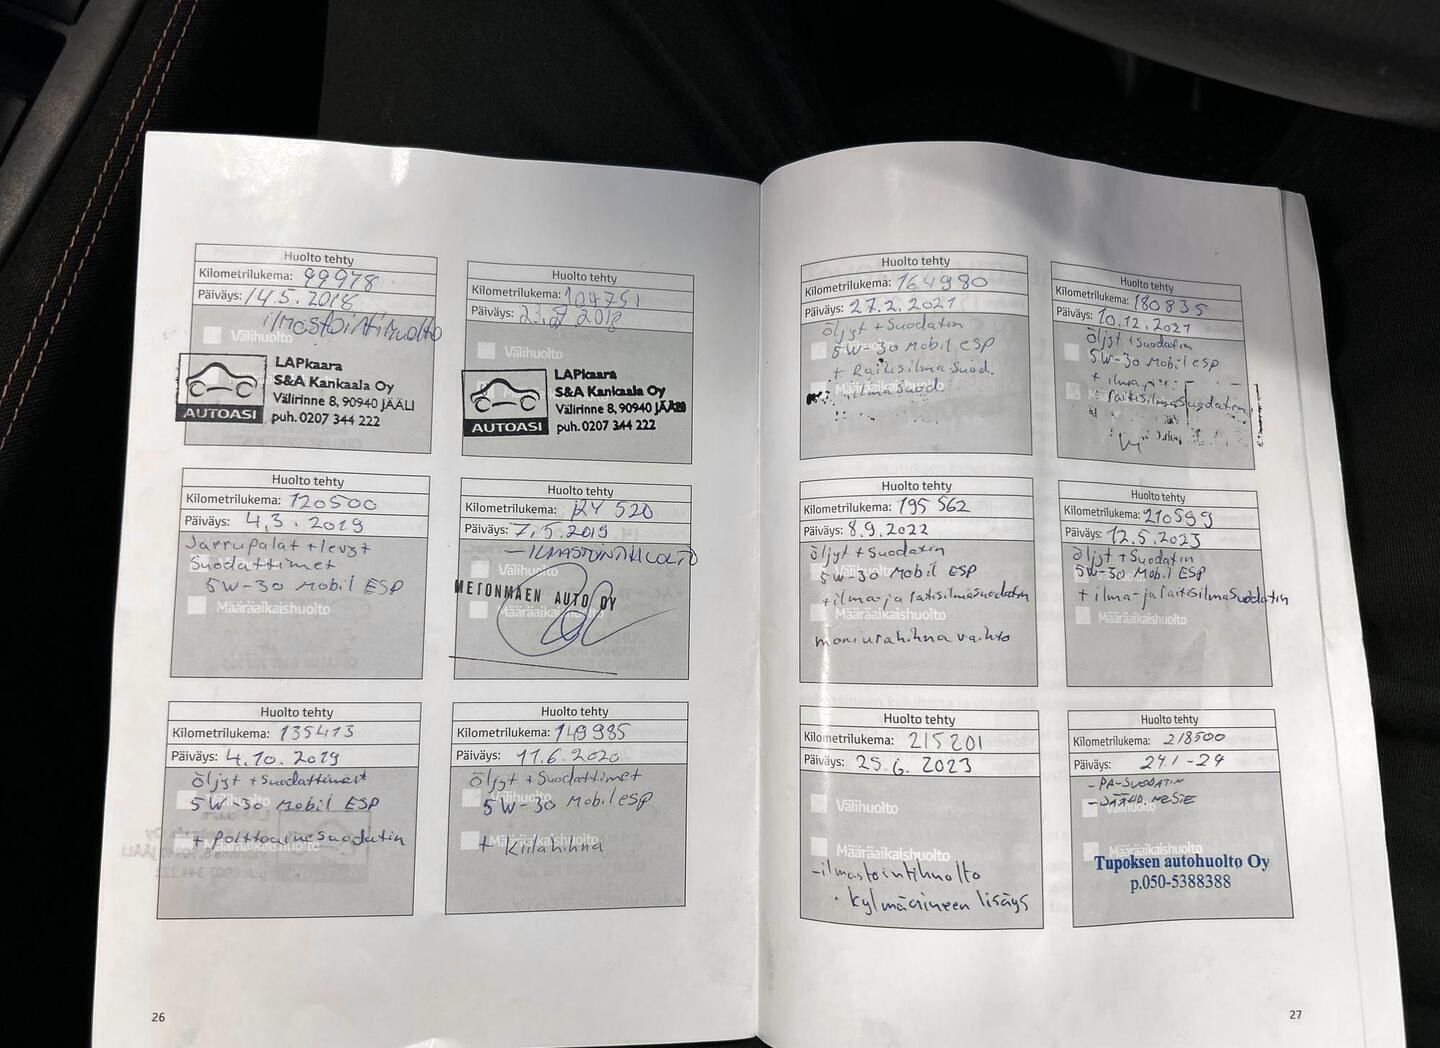 Huolto tehty
Kilometrilukema: 99978
Päiväys: 14.5.2018
ilmastointihuolto
Välihuolto
AUTOASI
LAPkaara
S&A Kankaala Oy
Välirinne 8, 90940 JÄÄLI
puh. 0207 344 222
Huolto tehty
Kilometrilukema: 104751
Päiväys: 2018
Välihuolto
AUTOASI
LAPkaara
S&A Kankaala Oy
Välirinne 8, 90940
puh. 0207 344 222
Huolto tehty
Kilometrilukema: 120500
Päiväys: 4.3.2019
Jarrupalat + levyt
Suodattimet
5W-30 Mobil ESP
Määräaikaishuolto
Huolto tehty
Kilometrilukema: 124 520
Päiväys: 7.5.2019
- ILMASTOINTIHUOLTO
Välihuolto
METONMÄEN AUTO OY
Määräaikaishuolto
Huolto tehty
Kilometrilukema: 135413
Päiväys: 4.10.2019
öljyt + Suodattimet
5W-30 Mobil ESP
+ Polttoainesuodatin
Huolto tehty
Kilometrilukema: 149985
Päiväys: 11.6.2020
öljyt + Suodattimet
5W-30 Mobil esp
+ Kiilahihna
26
Huolto tehty
Kilometrilukema: 164980
Päiväys: 27.2.2021
öljyt + Suodatin
5W-30 Mobil esp
+ Raitisilma Suod.
ilmaSuod
Huolto tehty
Kilometrilukema: 180835
Päiväys: 10.12.2021
öljyt + Suodatin
5W-30 Mobil esp
+ ilma
raitisilmaSuodatin
Huolto tehty
Kilometrilukema: 195 562
Päiväys: 8.9.2022
öljyt + Suodatin
5W-30 Mobil ESP
+ ilma-ja raitisilmasuodatin
Määräaikaishuolto
moniurahihna vaihto
Huolto tehty
Kilometrilukema: 210599
Päiväys: 12.5.2023
öljyt + Suodatin
5W-30 Mobil ESP
+ ilma-ja raitisilmaSuodatin
Määräaikaishuolto
Huolto tehty
Kilometrilukema: 215201
Päiväys: 25.6.2023
Välihuolto
Määräaikaishuolto
- ilmastointihuolto
· kylmäaineen lisäys
Huolto tehty
Kilometrilukema: 218500
Päiväys: 24.1-24
- PA-SUODATIN
- JÄÄHD.NESTE
Välihuolto
Määräaikaishuolto
Tupoksen autohuolto Oy
p.050-5388388
27